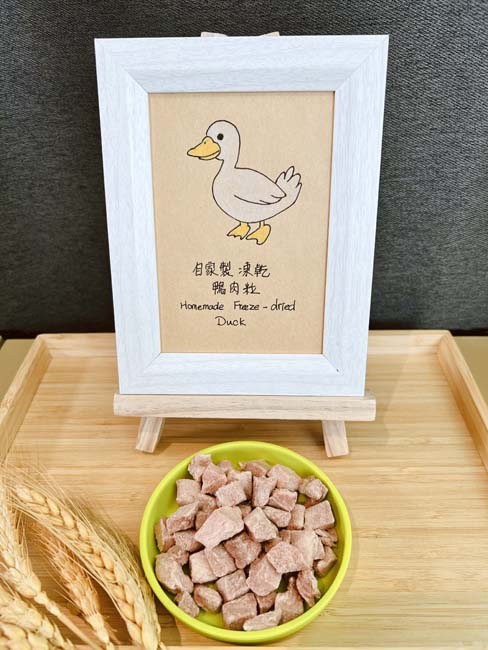 自家製 凍乾
鴨肉粒
Homemade Freeze-dried
Duck